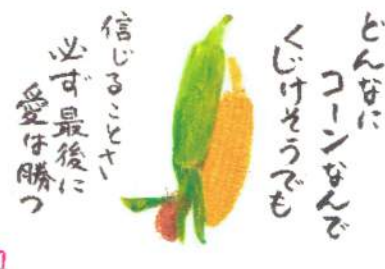 どんなに
コーンなんで
くじけそうでも
信じることさ
必ず最後に
愛は勝つ